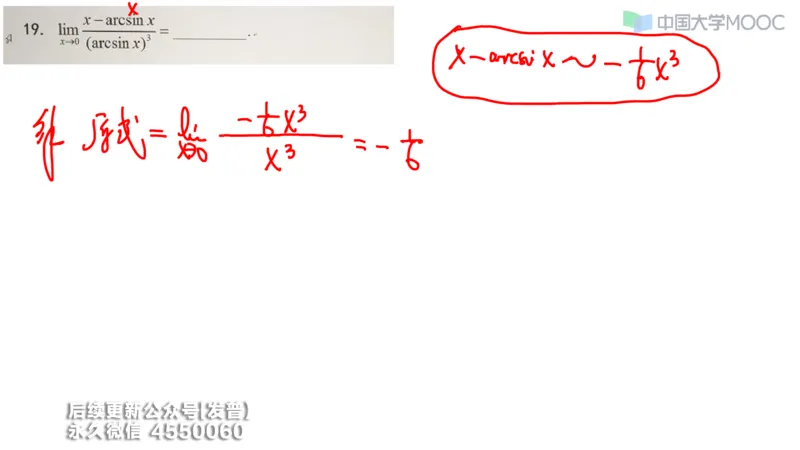 中国大学MOOC
19. lim x→0 (x − arcsin x)/(arcsin x)³ = ________ ..
x
x − arcsin x ~ − 1/6 x³
解 原式 = lim x→0 (− 1/6 x³)/(x³) = − 1/6
后续更新公众号[发普]
永久微信 4550060